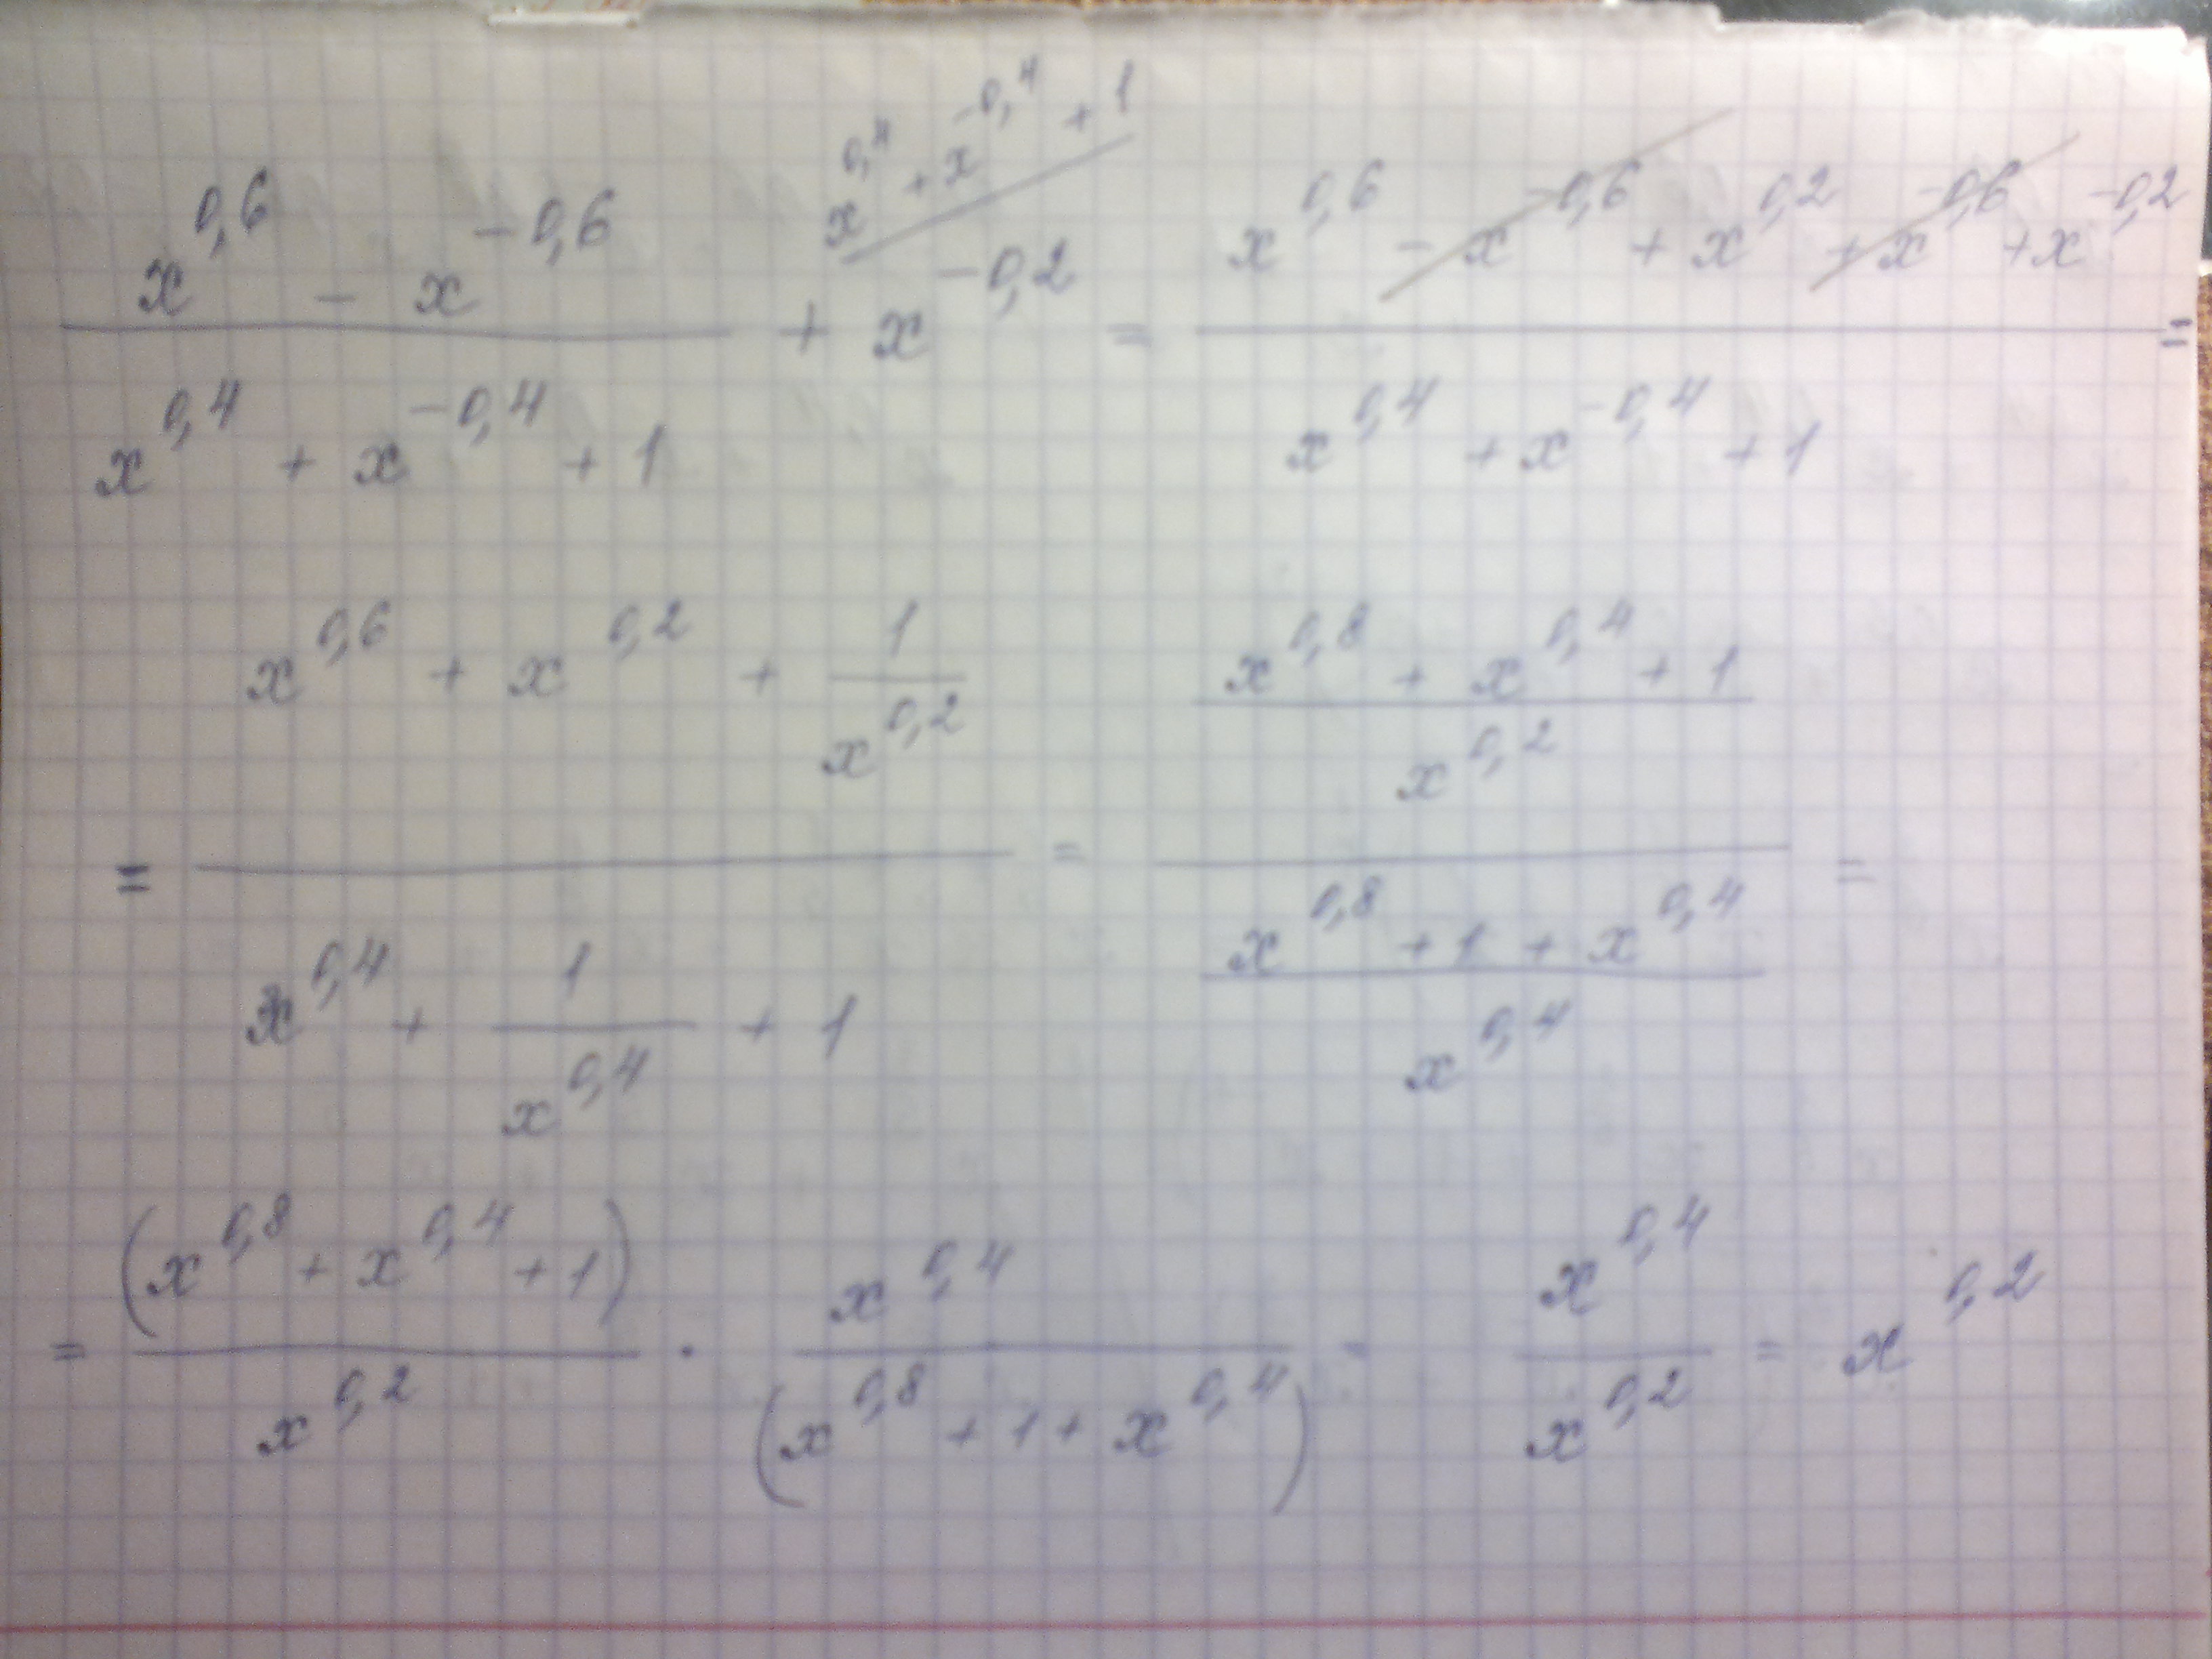 \frac{x^{0,6} - x^{-0,6}}{x^{0,4} + x^{-0,4} + 1} + x^{-0,2} \overline{/x^{0,4} + x^{-0,4} + 1} = \frac{x^{0,6} - x^{-0,6} + x^{0,2} + x^{-0,6} + x^{-0,2}}{x^{0,4} + x^{-0,4} + 1} =
= \frac{x^{0,6} + x^{0,2} + \frac{1}{x^{0,2}}}{x^{0,4} + \frac{1}{x^{0,4}} + 1} = \frac{\frac{x^{0,8} + x^{0,4} + 1}{x^{0,2}}}{\frac{x^{0,8} + 1 + x^{0,4}}{x^{0,4}}} =
= \frac{(x^{0,8} + x^{0,4} + 1)}{x^{0,2}} \cdot \frac{x^{0,4}}{(x^{0,8} + 1 + x^{0,4})} = \frac{x^{0,4}}{x^{0,2}} = x^{0,2}